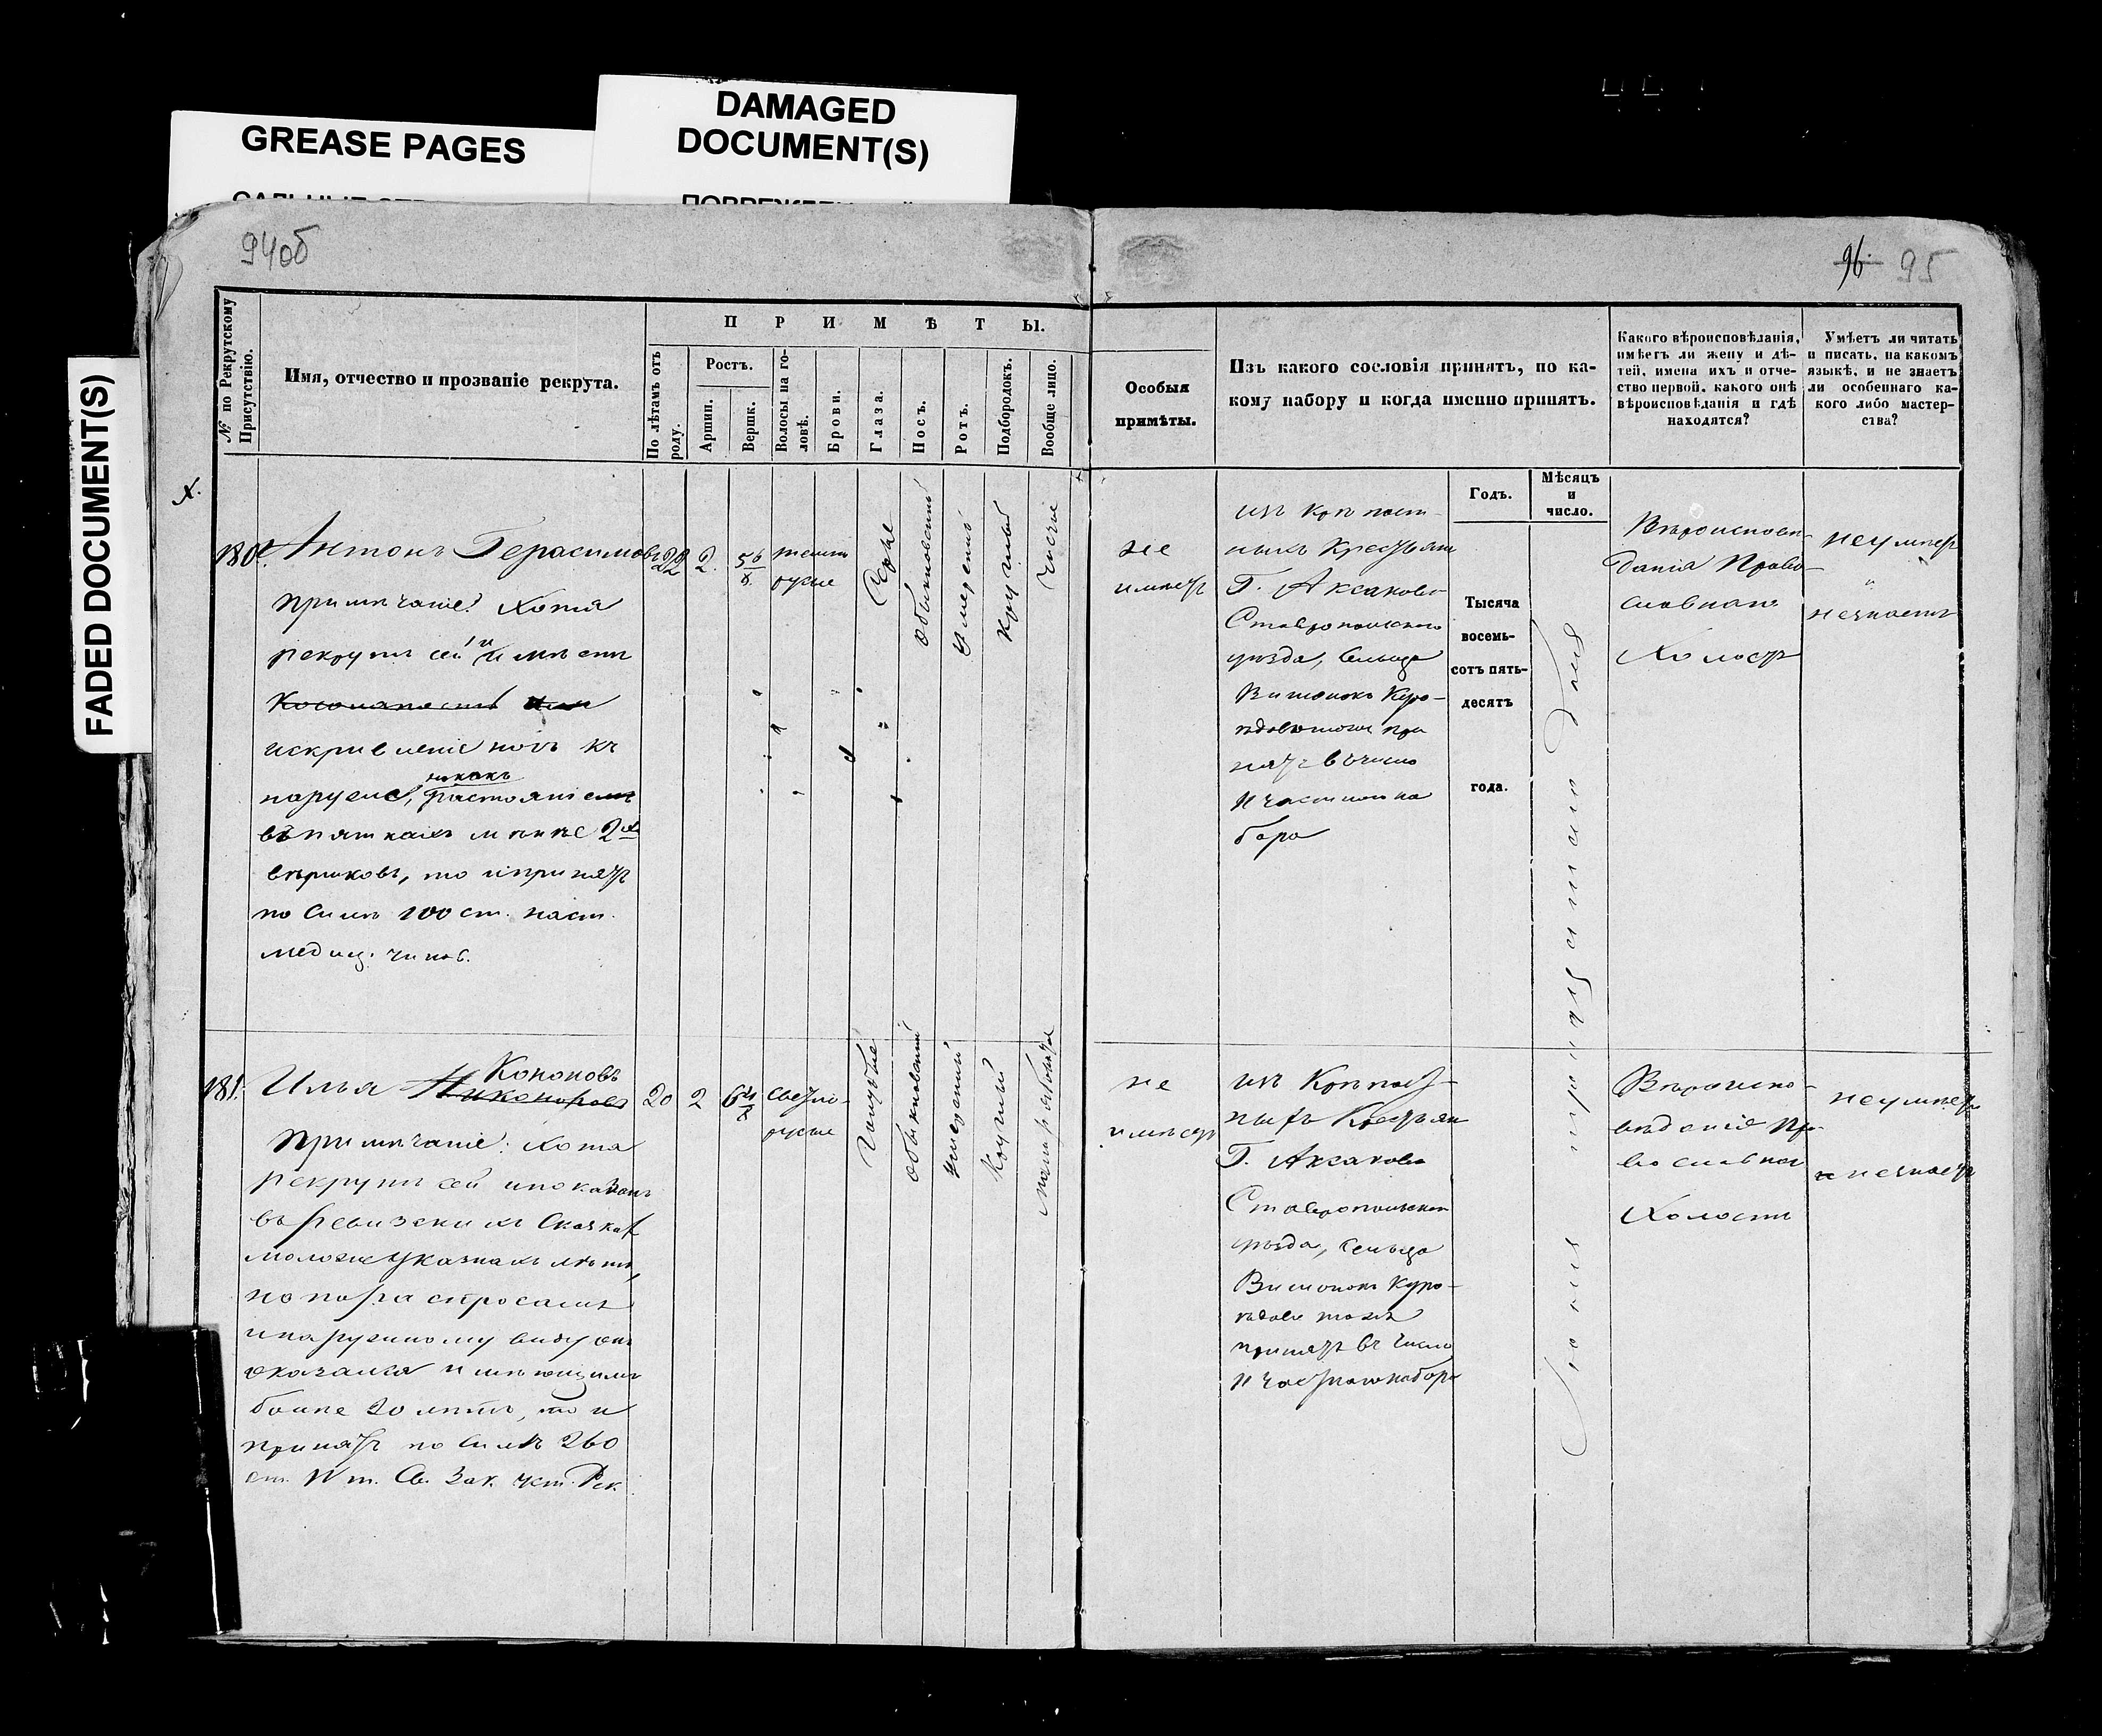 GREASE PAGES
DAMAGED
DOCUMENT(S)
FADED DOCUMENT(S)
94об
96. 95
№ по Рекрутскому
Присутствію.
Имя, отчество и прозваніе рекрута.
ПРИМѢТЫ.
По лѣтамъ отъ
роду.
Ростъ.
Аршин.
Вершк.
Волосы на го-
ловѣ.
Брови.
Глаза.
Носъ.
Ротъ.
Подбородокъ.
Вообще лицо.
Особыя
примѣты.
Изъ какого сословія принятъ, по ка-
кому набору и когда именно принятъ.
Какого вѣроисповѣданія,
имѣетъ ли жену и дѣ-
тей, имена ихъ и отче-
ство первой, какого онѣ
вѣроисповѣданія и гдѣ
находятся?
Умѣетъ ли читать
и писать, на какомъ
языкѣ, и не знаетъ
ли особеннаго ка-
кого либо мастер-
ства?
Годъ.
Мѣсяцъ
и
число.
180. Антонъ Герасимовъ
примѣчаніе: Хотя
рекрутъ сей и имѣетъ
искривленіе ногъ къ
наруже,
въ пяткахъ мѣнѣе 2хъ
вершковъ, то и принятъ
по силѣ 100 ст. наст.
медиц. чинов.
22
2.
5 6/8
темно
русые
Серые
Обыкновенный
Умеренный
Круглый
Чистое
не
имѣетъ
изъ крѣпост-
ныхъ крестьян
Г. Аксакова
Ставропольскаго
уѣзда, сельца
Вишенокъ Куро-
ѣдово тожъ при
нятъ въ число
II частнаго на
бора
Тысяча
восемь-
сотъ пять-
десятъ
года.
Вѣроисповѣ-
данія Право-
славнаго
Холостъ
неумѣетъ
незнаетъ
181. Илья Никоноровъ Кононовъ
примѣчаніе: хотя
рекрутъ сей и показанъ
въ ревизскихъ сказкахъ
моложе указныхъ лѣтъ,
но по
и наружному виду онъ
оказался имѣющимъ
болѣе 20 лѣтъ, то и
принятъ по силѣ 260
ст. IV т. Св. Зак. уст. Рек.
20
2
6 4/8
Светло-
русые
Голубые
Обыкновенный
Умеренный
Круглый
не
имѣетъ
изъ Крѣпост-
ныхъ Крестьян
Г. Аксакова
Ставропольскаго
уѣзда, сельца
Вишенокъ Куро-
ѣдово тожъ
принятъ въ число
II частнаго набора
Вѣроиспо-
вѣданія Пра-
вославнаго
Холостъ
неумѣетъ
и незнаетъ